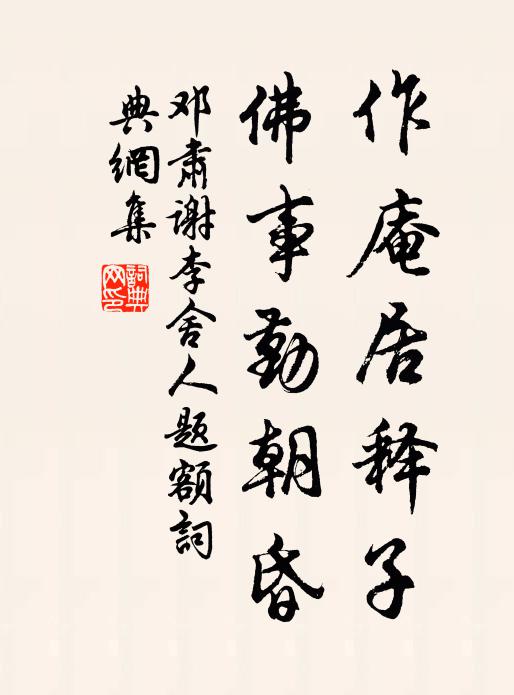 作庵居释子
佛事勤朝昏
邓肃谢李舍人题额詞
典網集
詞典网印